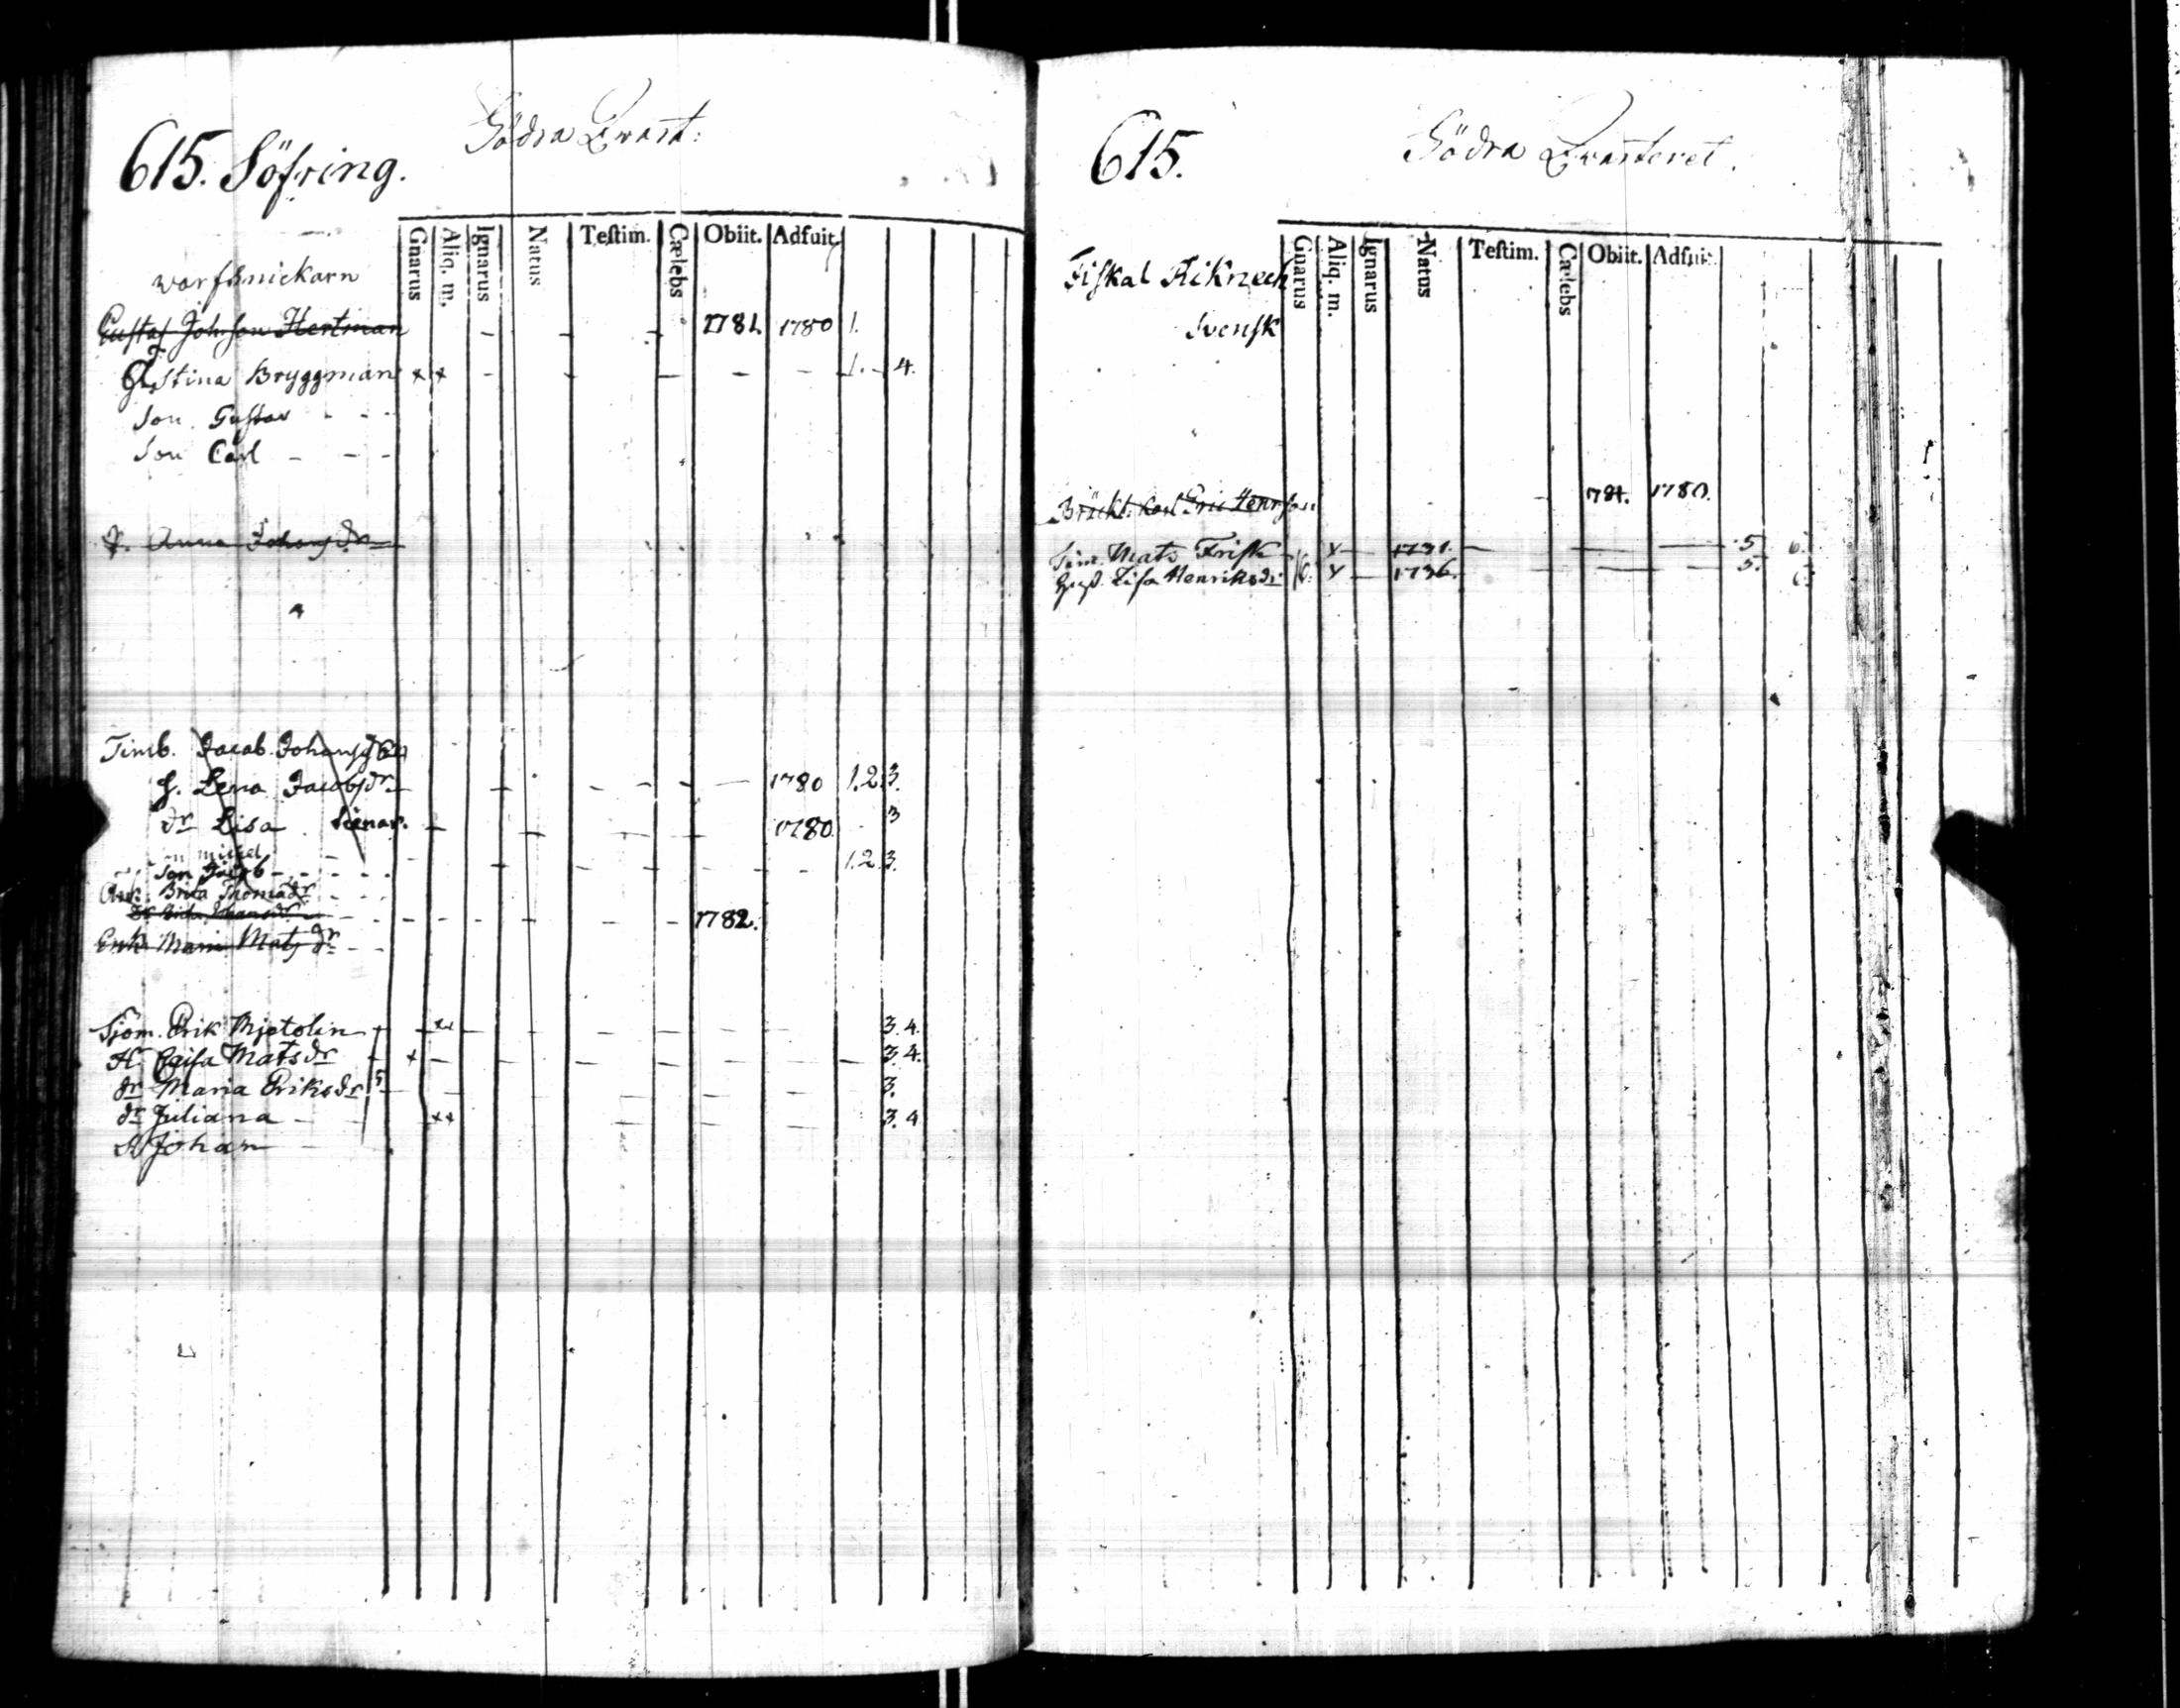 615. Söfring. Södra Qwart:
Gnarus Aliq. m. Ignarus Natus Testim. Cælebs Obiit. Adfuit.
warfsnickarn
Gustaf Johnson Hertman - - - 1781. 1780 1.
Stina Bryggman x x - - - - - 1. - 4.
Son Gustav - - -
Son Carl - - -
Anna Johansdr
Timb. Jacob Johansson
h. Lena Jacobsdr - - - - - - 1780 1.2.3.
dr Lisa - - - - - 1780 3
Son Jacob - - - - 1.2.3.
Brita Thomadr - - -
1782.
Enk. Maria Matsdr - -
Sjöm. Erik Mjetolin - xx - - - - - - 3.4.
H. Caisa Matsdr - x - - - - - - - - 3.4.
dr Maria Eriksdr 5 - - - - - - 3.
dr Juliana - - xx - - - - 3.4
S Johan - -
615. Södra Qwarteret.
Gnarus Aliq. m. Ignarus Natus Testim. Cælebs Obiit. Adfuit.
Fiskal Riknech
Svensk
Eric Henrsson - 1781. 1780.
Tim. Mats Frisk - x - 1731. - - - - 5 6.
Lisa Henriksdr x - 1736. - - 5. 6